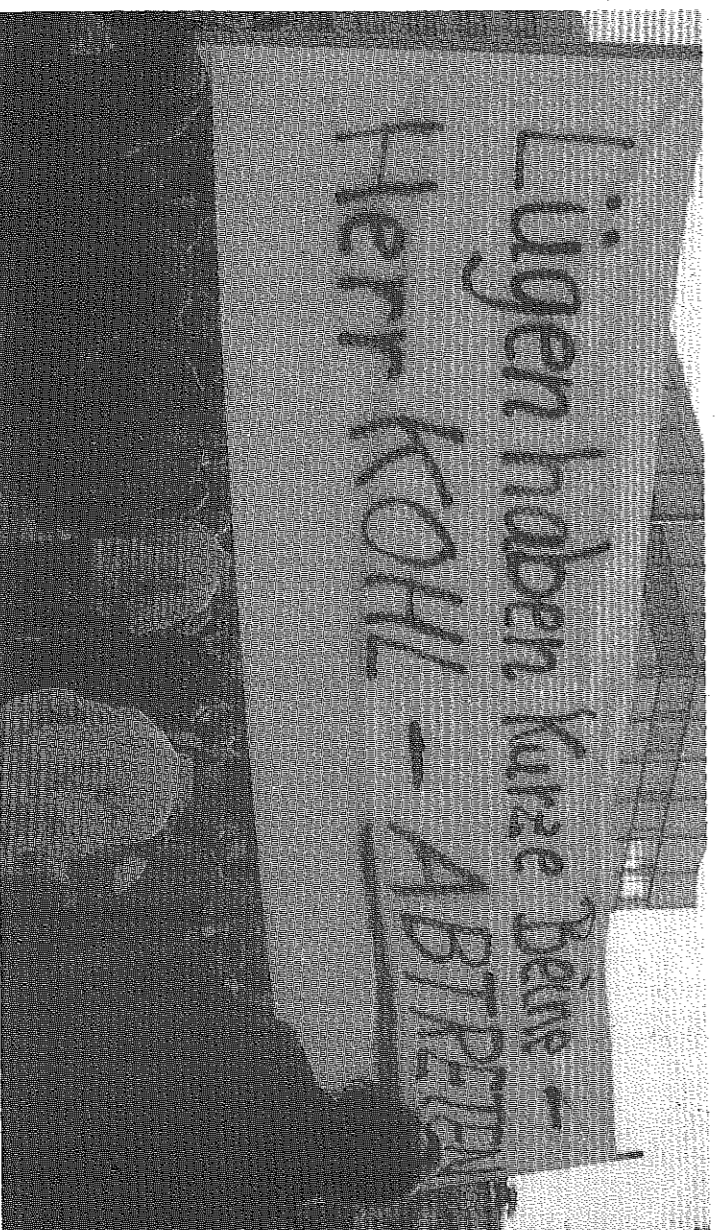 Lügen haben kurze Beine -
Herr KOHL - ABTRETEN